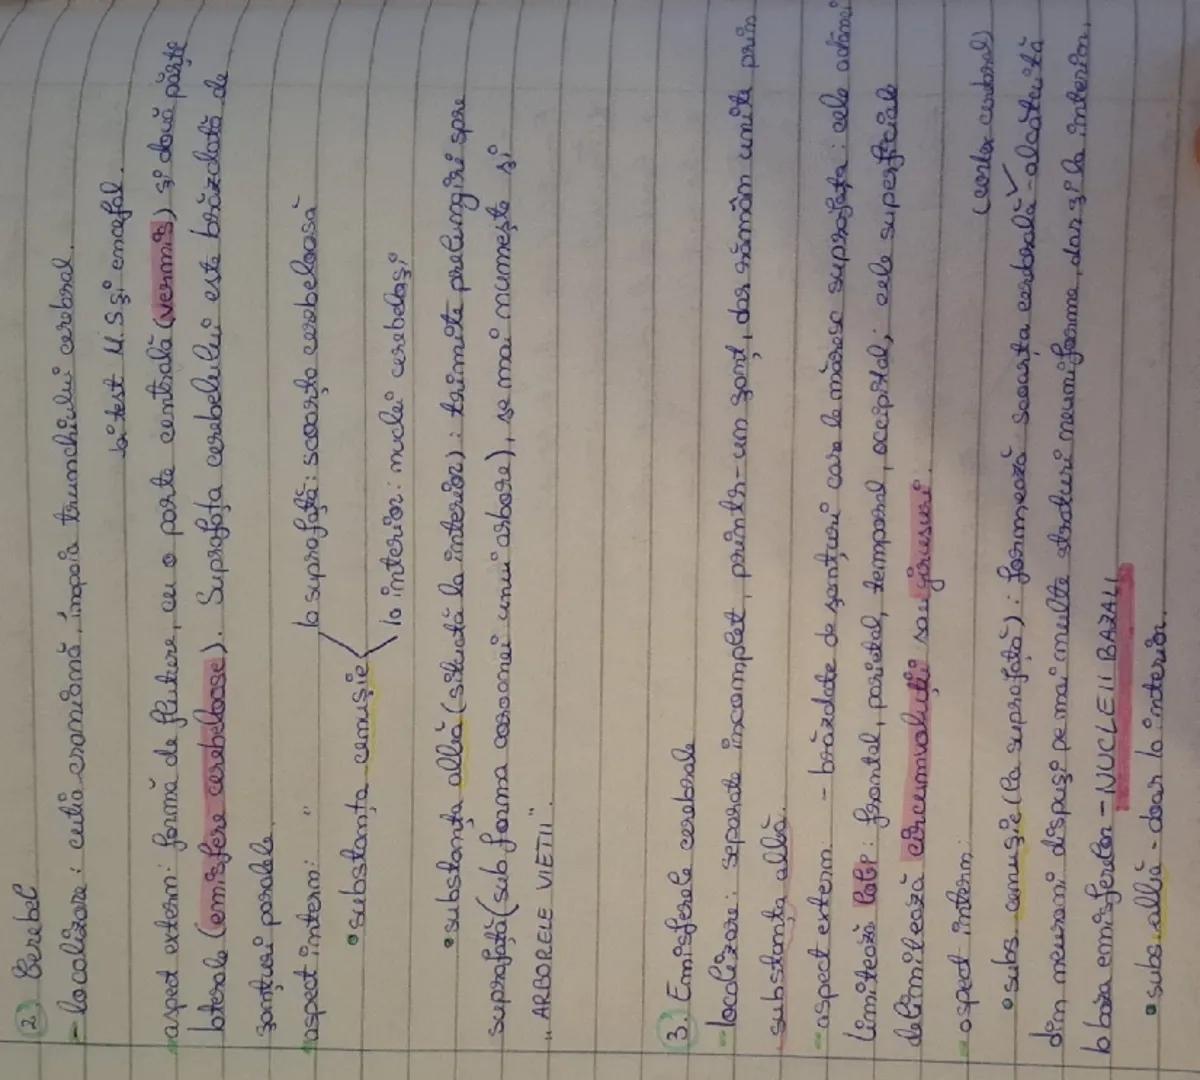 2. Cerebel
- localizare: cutia craniană, înapoia trunchiului cerebral.
la test M.S și encefal.
- aspect extern: formă de fluture, cu o parte centrală (vermis) și două părți
laterale (emisfere cerebeloase). Suprafața cerebelului este brăzdată de
șanțuri paralele.
- aspect intern: "
• substanța cenușie
la suprafață: scoarța cerebeloasă
la interior: nuclei cerebeloși
• substanța albă (situată la interior): trimite prelungiri spre
suprafață (sub forma coroanei unui arbore), se mai numește și
„ARBORELE VIETII".
3. Emisferele cerebrale
- localizare: separate incomplet, printr-un șanț, dar rămân unite prin
substanța albă.
- aspect extern: - brăzdate de șanțuri care le măresc suprafața: cele adânci
limitează lobii: frontal, parietal, temporal, occipital; cele superficiale
delimitează circumvoluții sau girusuri.
- aspect intern:
(cortex cerebral)
• subs. cenușie (la suprafață): formează scoarța cerebrală - alcătuită
din neuroni dispuși pe mai multe straturi neuniforme, dar și la interior,
la baza emisferelor - NUCLEII BAZALI
• subs. albă - doar la interior.